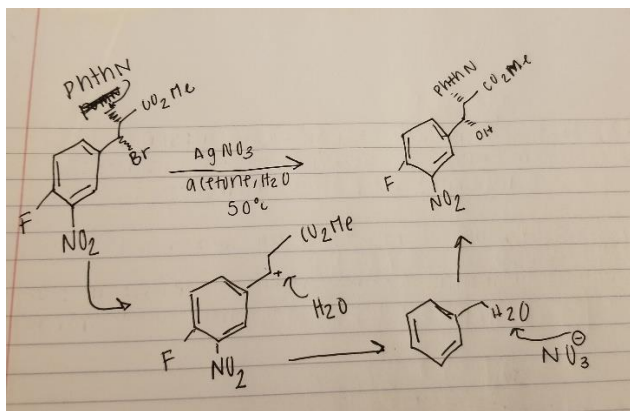 PhthN
CO2Me
Br
F
NO2
AgNO3
acetone, H2O
50°C
PhthN
CO2Me
OH
F
NO2
CO2Me
+
H2O
F
NO2
H2O
NO3 ⊖